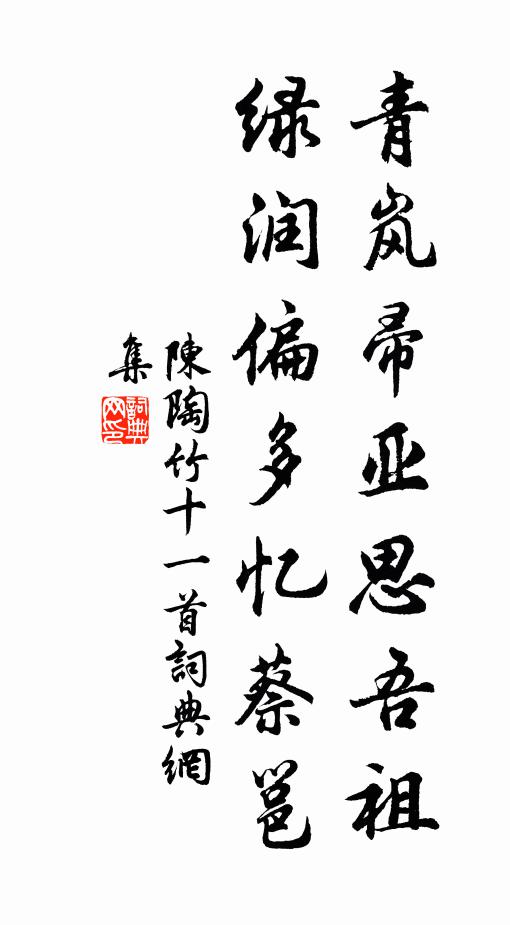 青岚帚亚思吾祖
绿润偏多忆蔡邕
陳陶竹十一首詞典網
集
詞典
网印